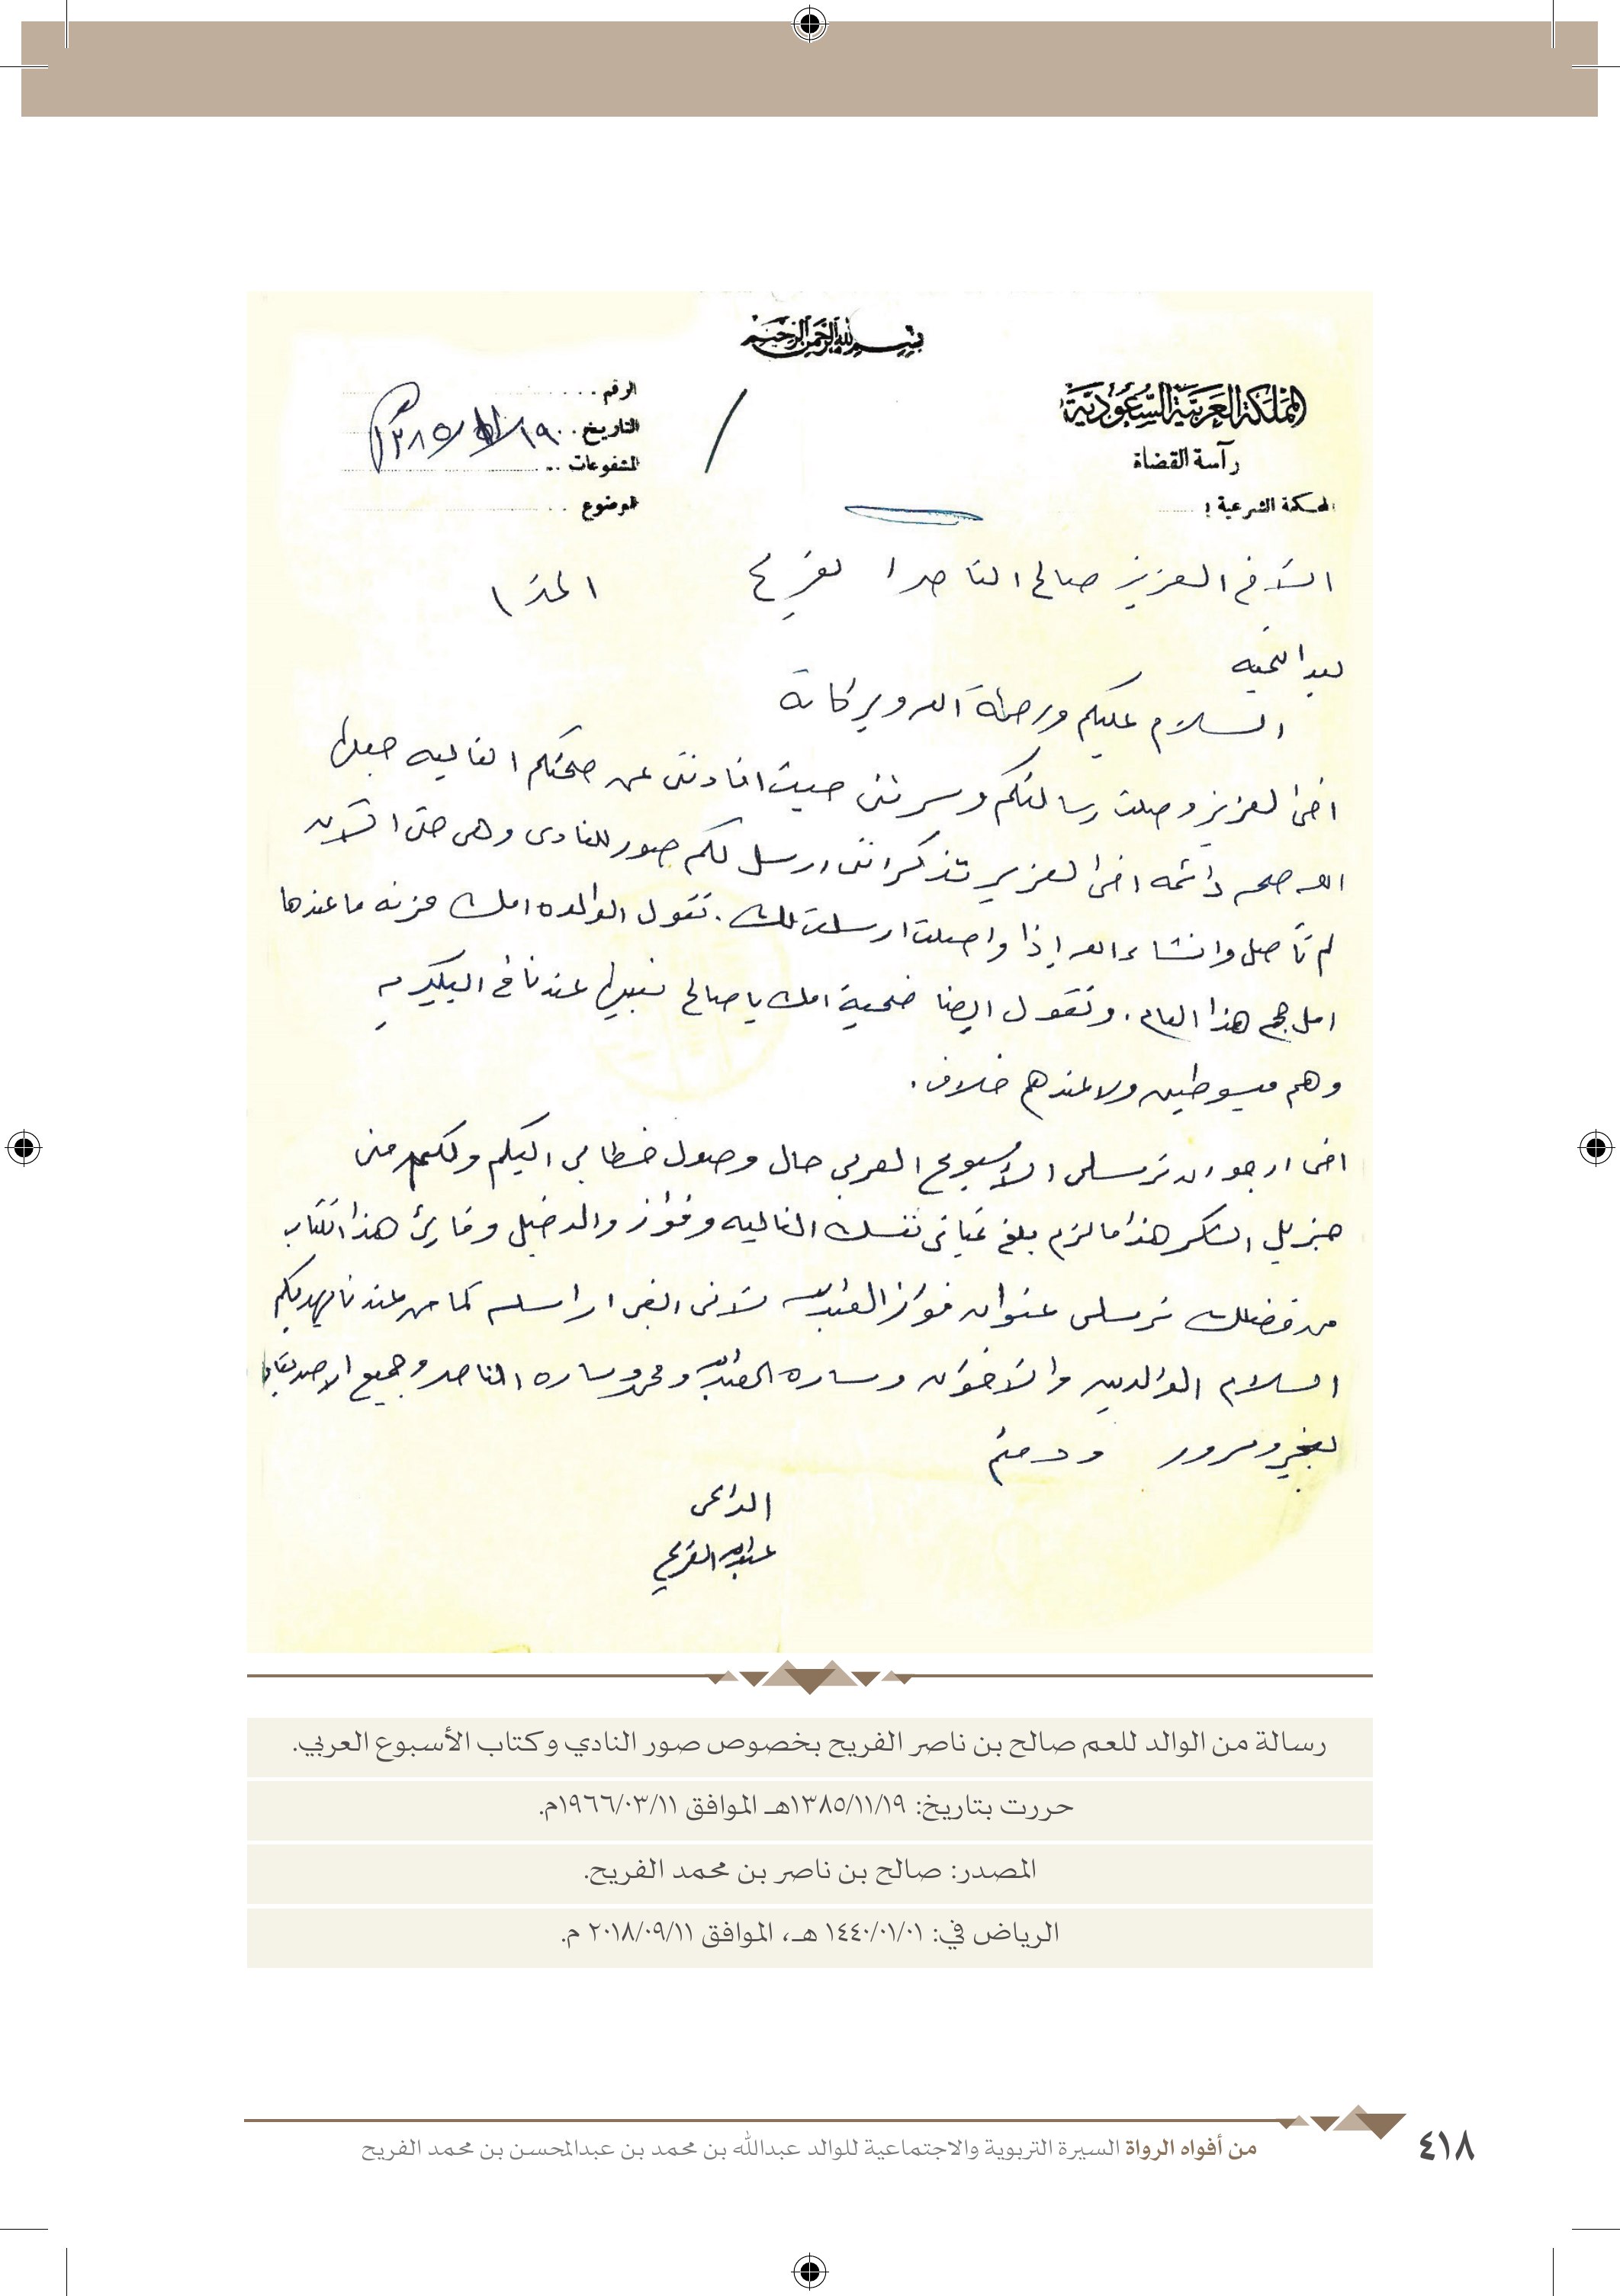 بسم الله الرحمن الرحيم
المملكة العربية السعودية
رآسة القضاة
المحكمة الشرعية :
الرقم
التاريخ ١٩/١١/١٣٨٥
المشفوعات
الموضوع
الاخ العزيز صالح الناصر الفريح المحترم
بعد التحيه
السلام عليكم ورحمة الله وبركاته
اخى العزيز وصلت رسالتكم وسرتنى حيث افادتنى عن صحتكم الغاليه جعلها
الله صحه دائمه اخى العزيز تذكر اننى ارسل لكم صور للنادى وهى حتى الآن
لم تأصل وانشاء الله إذا واصلت ارسلت لك . تقول الوالده امك مزنه ما عندها
امل حج هذا العام . وتقول ايضا ضحية امك يا صالح عندنا في البكيريه
وهم مبسوطين ولا عندهم خلاف .
اخى ارجو ان ترسلى الأسبوع العربي حال وصول خطابي اليكم ولكم منى
جزيل الشكر هذا مالزم بلغ تحياتى نفسك الغاليه وفواز والدخيل وقارئ هذا الكتاب
من فضلك ترسلى عنوان فواز العبدالله لأنى ابغى اراسله كما من عندنا يهديكم
السلام الوالدين والأخوان وساره العبدالله ومحمد وساره الناصر وجميع الاصدقاء
بخير وسرور ودمتم
الداعى
عبدالله الفريح
رسالة من الوالد للعم صالح بن ناصر الفريح بخصوص صور النادي وكتاب الأسبوع العربي.
حررت بتاريخ: ١٣٨٥/١١/١٩هـ الموافق ١٩٦٦/٠٣/١١م.
المصدر: صالح بن ناصر بن محمد الفريح.
الرياض في: ١٤٤٠/٠١/٠١ هـ، الموافق ٢٠١٨/٠٩/١١ م.
من أفواه الرواة السيرة التربوية والاجتماعية للوالد عبدالله بن محمد بن عبدالمحسن بن محمد الفريح
٤١٨